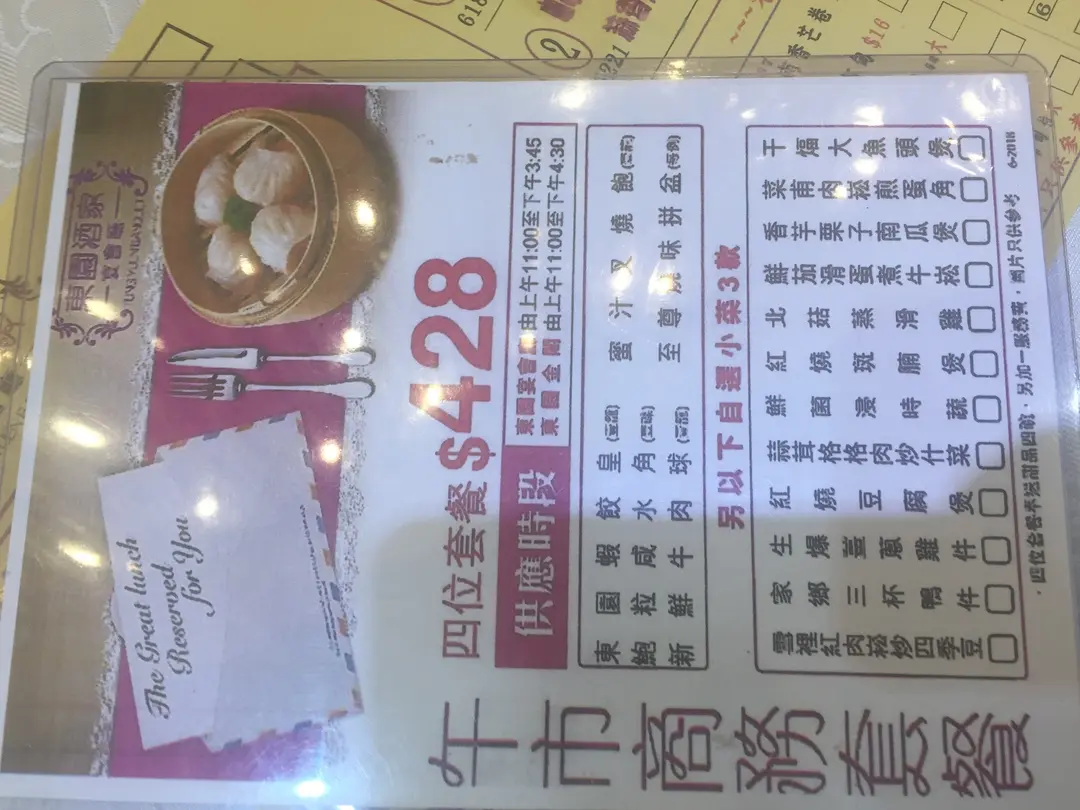 東園酒家
宴會廳
The Great lunch
Reserved
for You
午市商務套餐
四位套餐 $428
供應時段
東園宴會廳 由上午11:00至下午3:45
東園金閣 由上午11:00至下午4:30
東園蝦餃皇(壹籠) 蜜汁叉燒飽
鮑粒咸水角(壹碟) 至尊燒味拼盆(每例)
新鮮牛肉球(壹籠)
另以下自選小菜3款
干煏大魚頭煲
菜甫肉崧煎蛋角
香芋栗子南瓜煲
鮮茄滑蛋煮牛崧
北菇蒸滑雞
紅燒斑腩煲
鮮菌浸時蔬
蒜茸格格肉炒什菜
紅燒豆腐煲
生爆薑蔥雞件
家鄉三杯鴨件
雪裡紅肉崧炒四季豆
．四位套餐奉送甜品四碗．另加一服務費．圖片只供參考 6-2018
618
2
221
$16